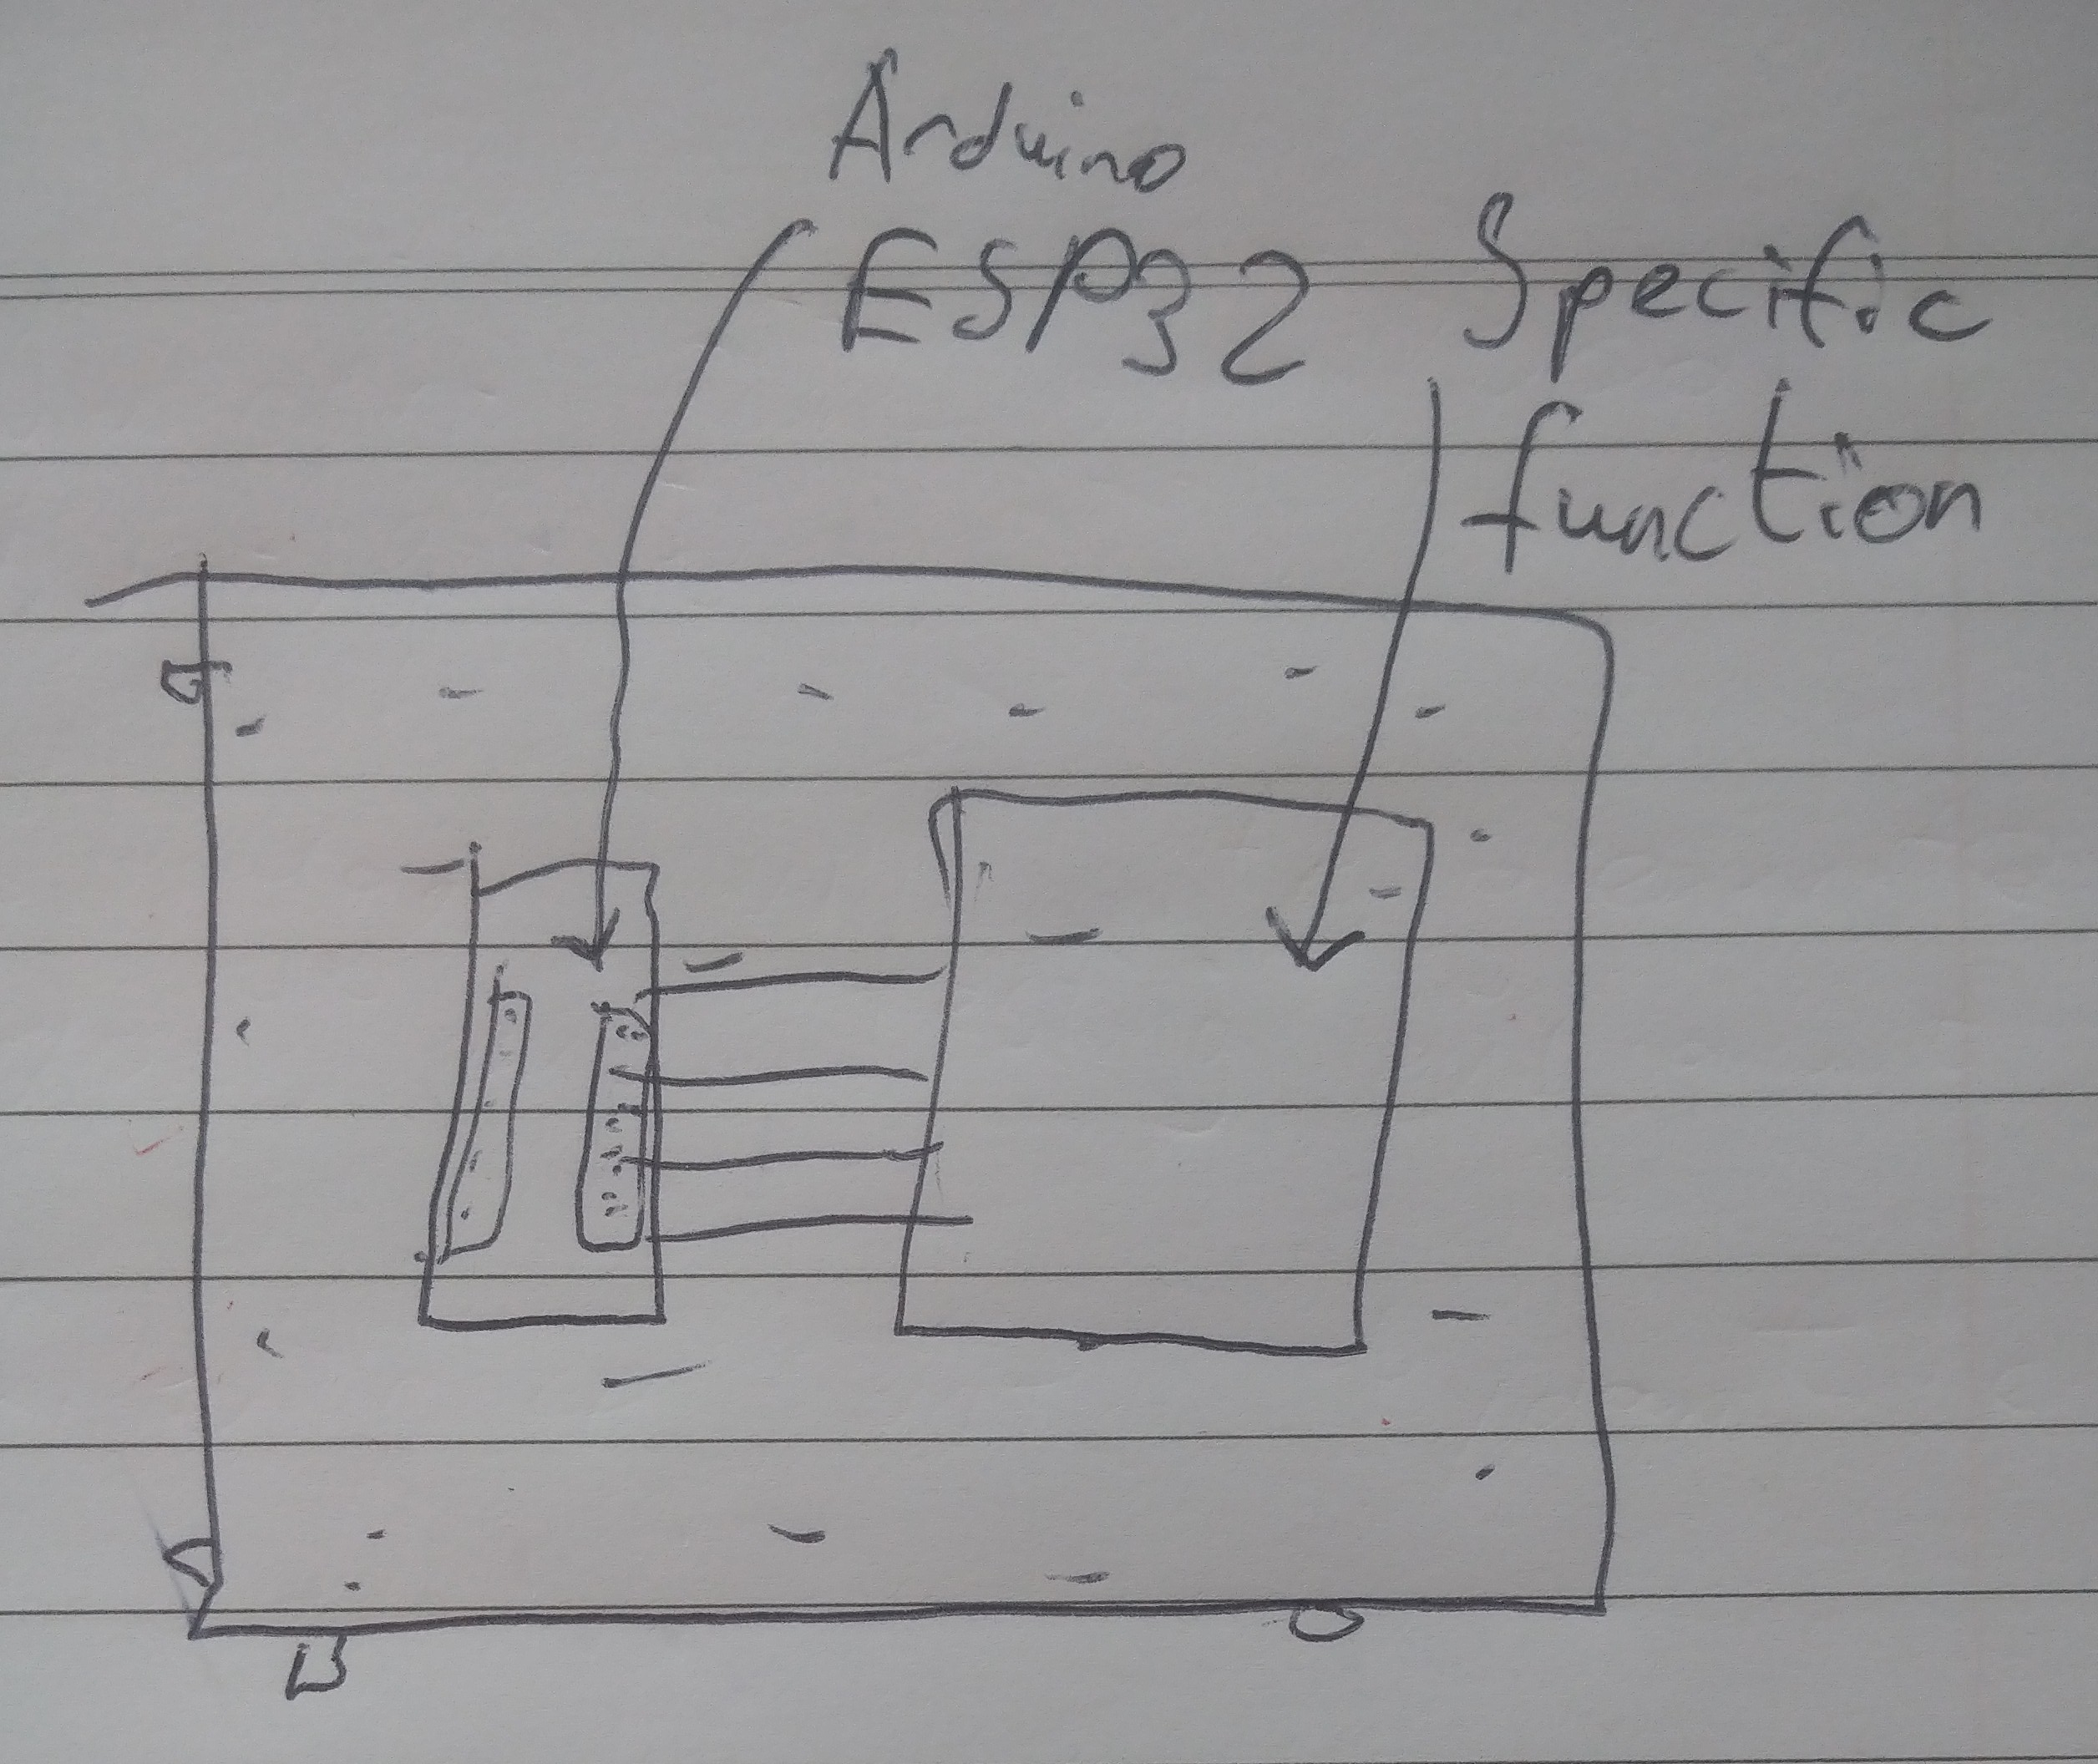 Arduino
ESP32
Specific
function